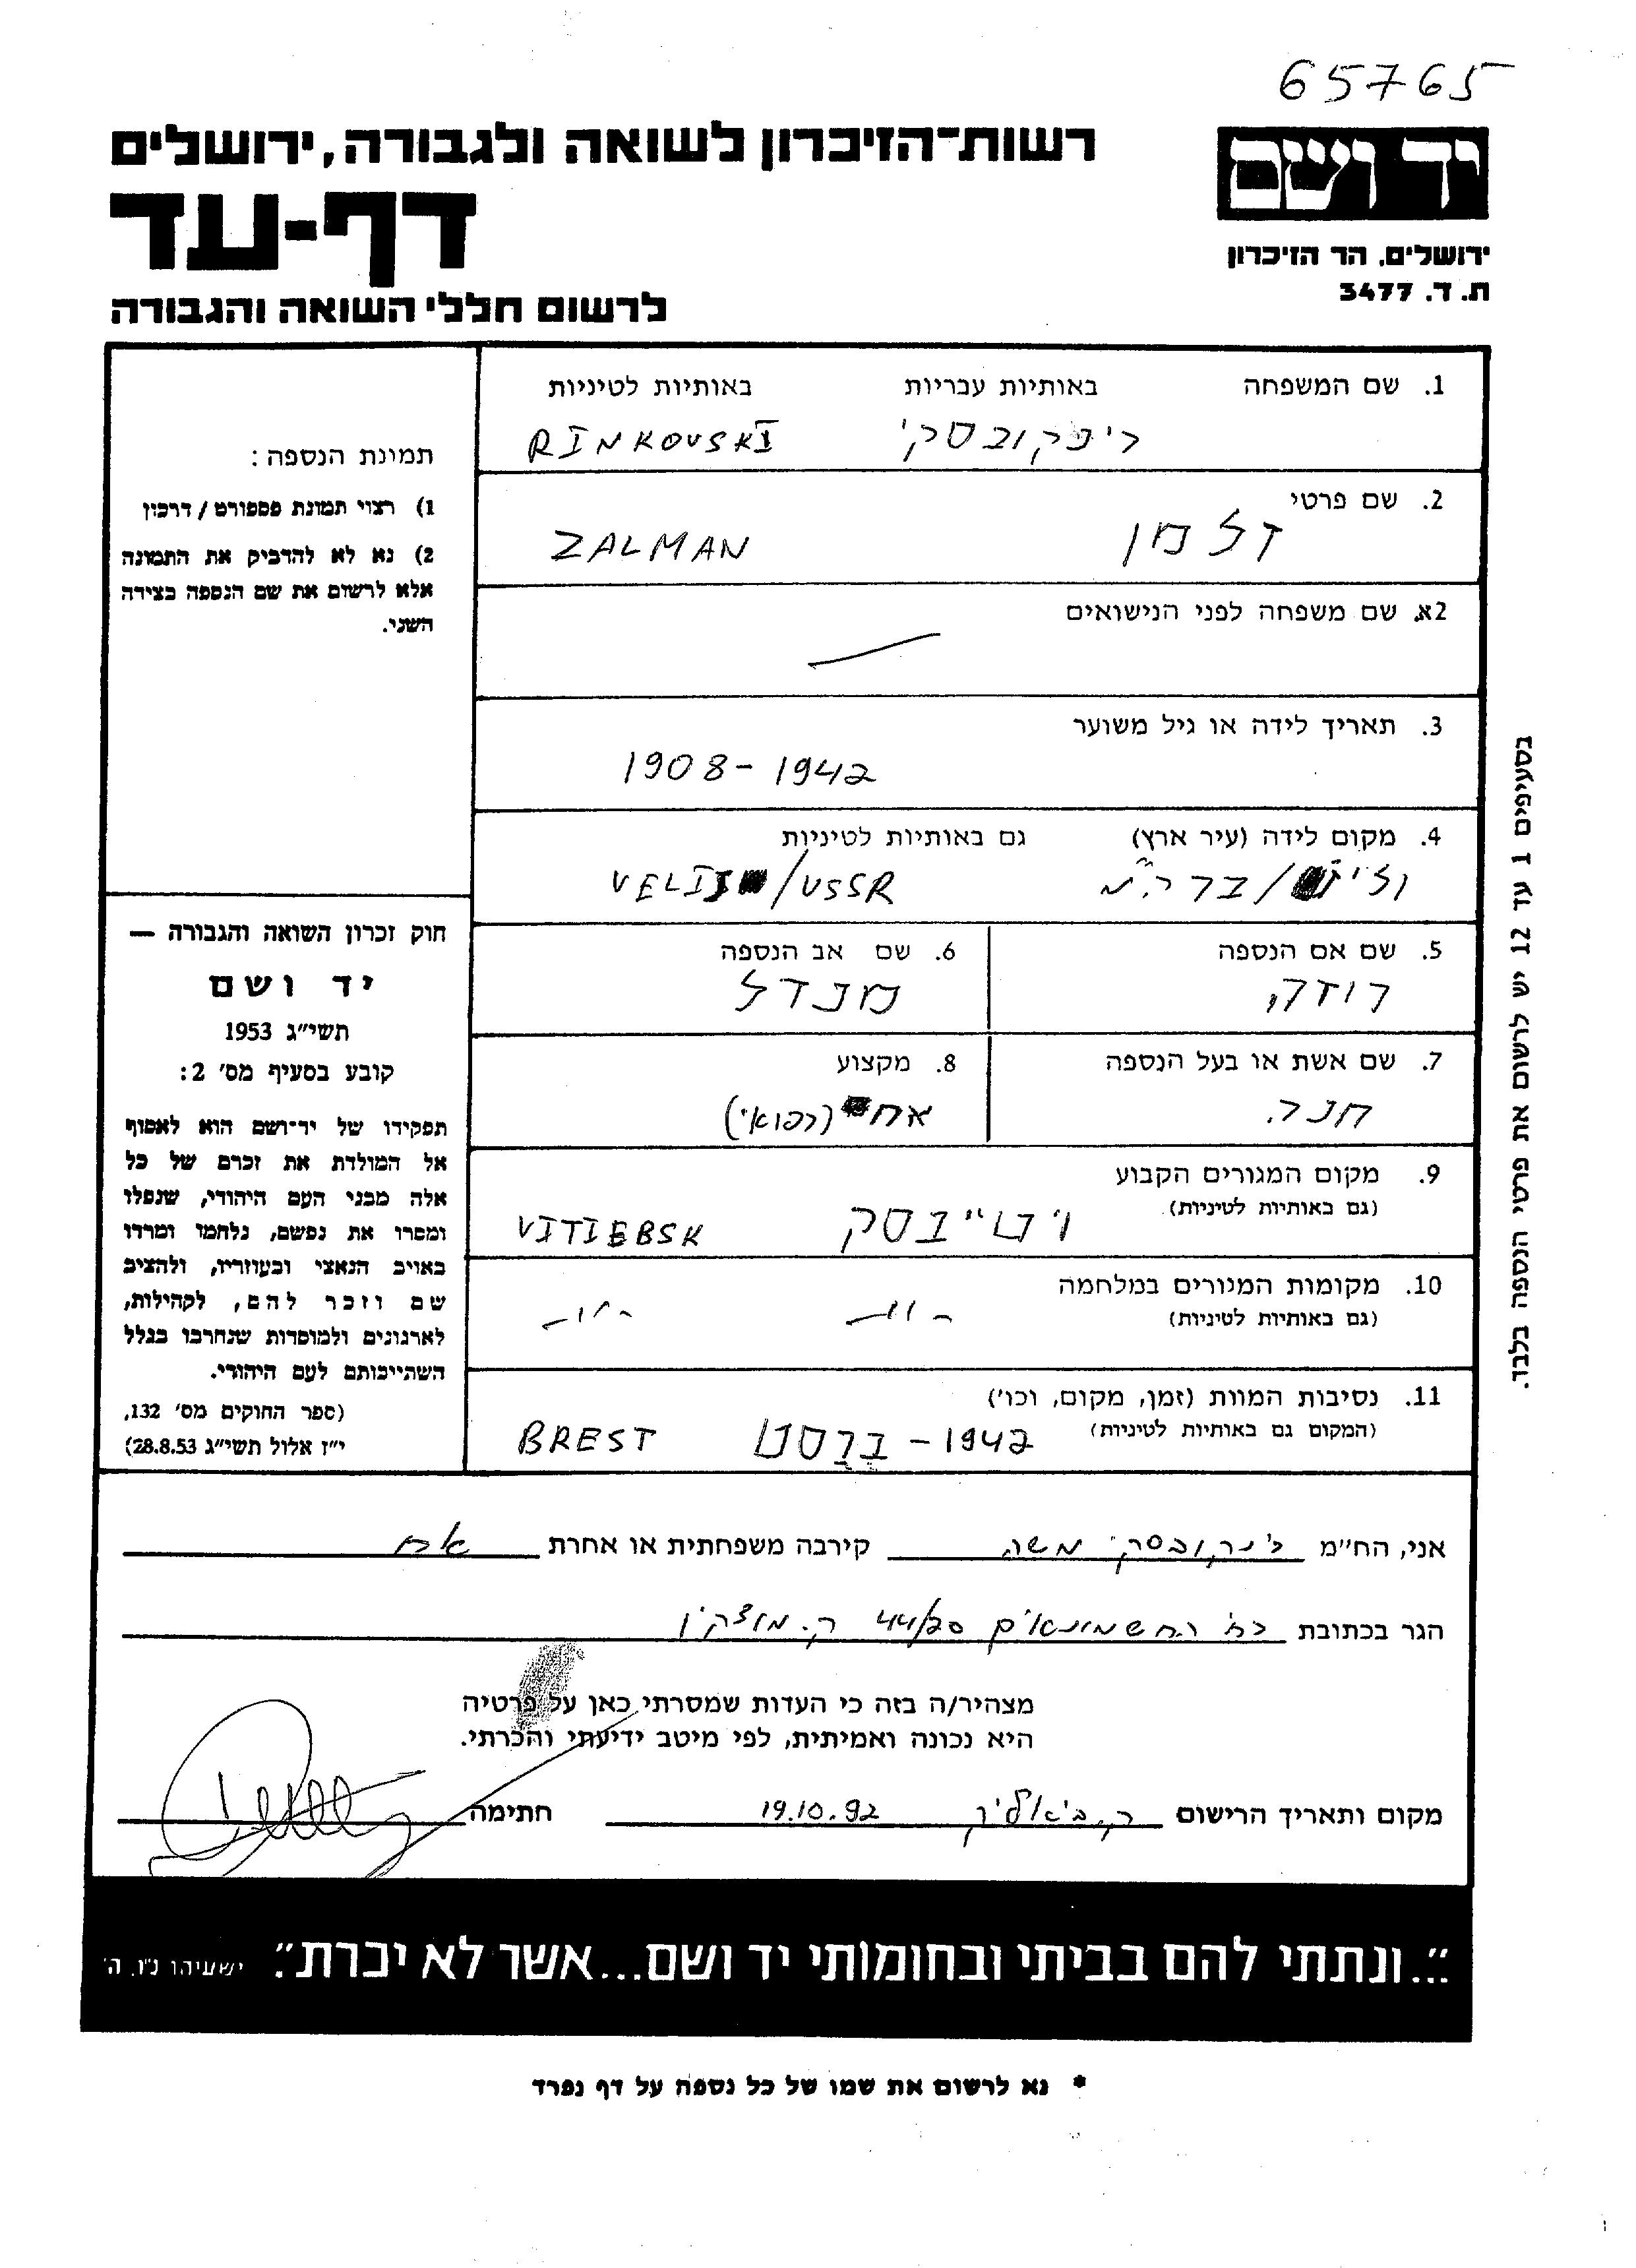 65765
יד ושם
ירושלים, הר הזיכרון
ת. ד. 3477
רשות-הזיכרון לשואה ולגבורה, ירושלים
דף-עד
לרשום חללי השואה והגבורה
1. שם המשפחה באותיות עבריות באותיות לטיניות
רינקובסקי RINKOVSKI
2. שם פרטי
זלמן ZALMAN
2א. שם משפחה לפני הנישואים
3. תאריך לידה או גיל משוער
1908-1942
4. מקום לידה (עיר ארץ) גם באותיות לטיניות
/ברה"מ /USSR
5. שם אם הנספה 6. שם אב הנספה
רוזה מנדל
7. שם אשת או בעל הנספה 8. מקצוע
חנה אח (רפואי)
9. מקום המגורים הקבוע
(גם באותיות לטיניות)
ויטייבסק VITIEBSK
10. מקומות המגורים במלחמה
(גם באותיות לטיניות)
-"- -"-
11. נסיבות המוות (זמן, מקום, וכו')
(המקום גם באותיות לטיניות)
1942 - ברסט BREST
תמונת הנספה:
1) רצוי תמונת פספורט / דרכון
2) נא לא להדביק את התמונה
אלא לרשום את שם הנספה בצידה
השני.
חוק זכרון השואה והגבורה —
יד ושם
תשי"ג 1953
קובע בסעיף מס' 2:
תפקידו של יד-ושם הוא לאסוף
אל המולדת את זכרם של כל
אלה מבני העם היהודי, שנפלו
ומסרו את נפשם, נלחמו ומרדו
באויב הנאצי ובעוזריו, ולהציב
שם וזכר להם, לקהילות,
לארגונים ולמוסדות שנחרבו בגלל
השתייכותם לעם היהודי.
(ספר החוקים מס' 132,
י"ז אלול תשי"ג 28.8.53)
בסעיפים 1 עד 12 יש לרשום את פרטי הנספה בלבד.
אני, הח"מ רינקובסקי משה קירבה משפחתית או אחרת אח
הגר בכתובת רח' החשמונאים 44/20 ק. מוצקין
מצהיר/ה בזה כי העדות שמסרתי כאן על פרטיה
היא נכונה ואמיתית, לפי מיטב ידיעתי והכרתי.
מקום ותאריך הרישום ק. ביאליק 19.10.92 חתימה
"...ונתתי להם בביתי ובחומותי יד ושם...אשר לא יכרת". ישעיהו נ"ו, ה'
* נא לרשום את שמו של כל נספה על דף נפרד